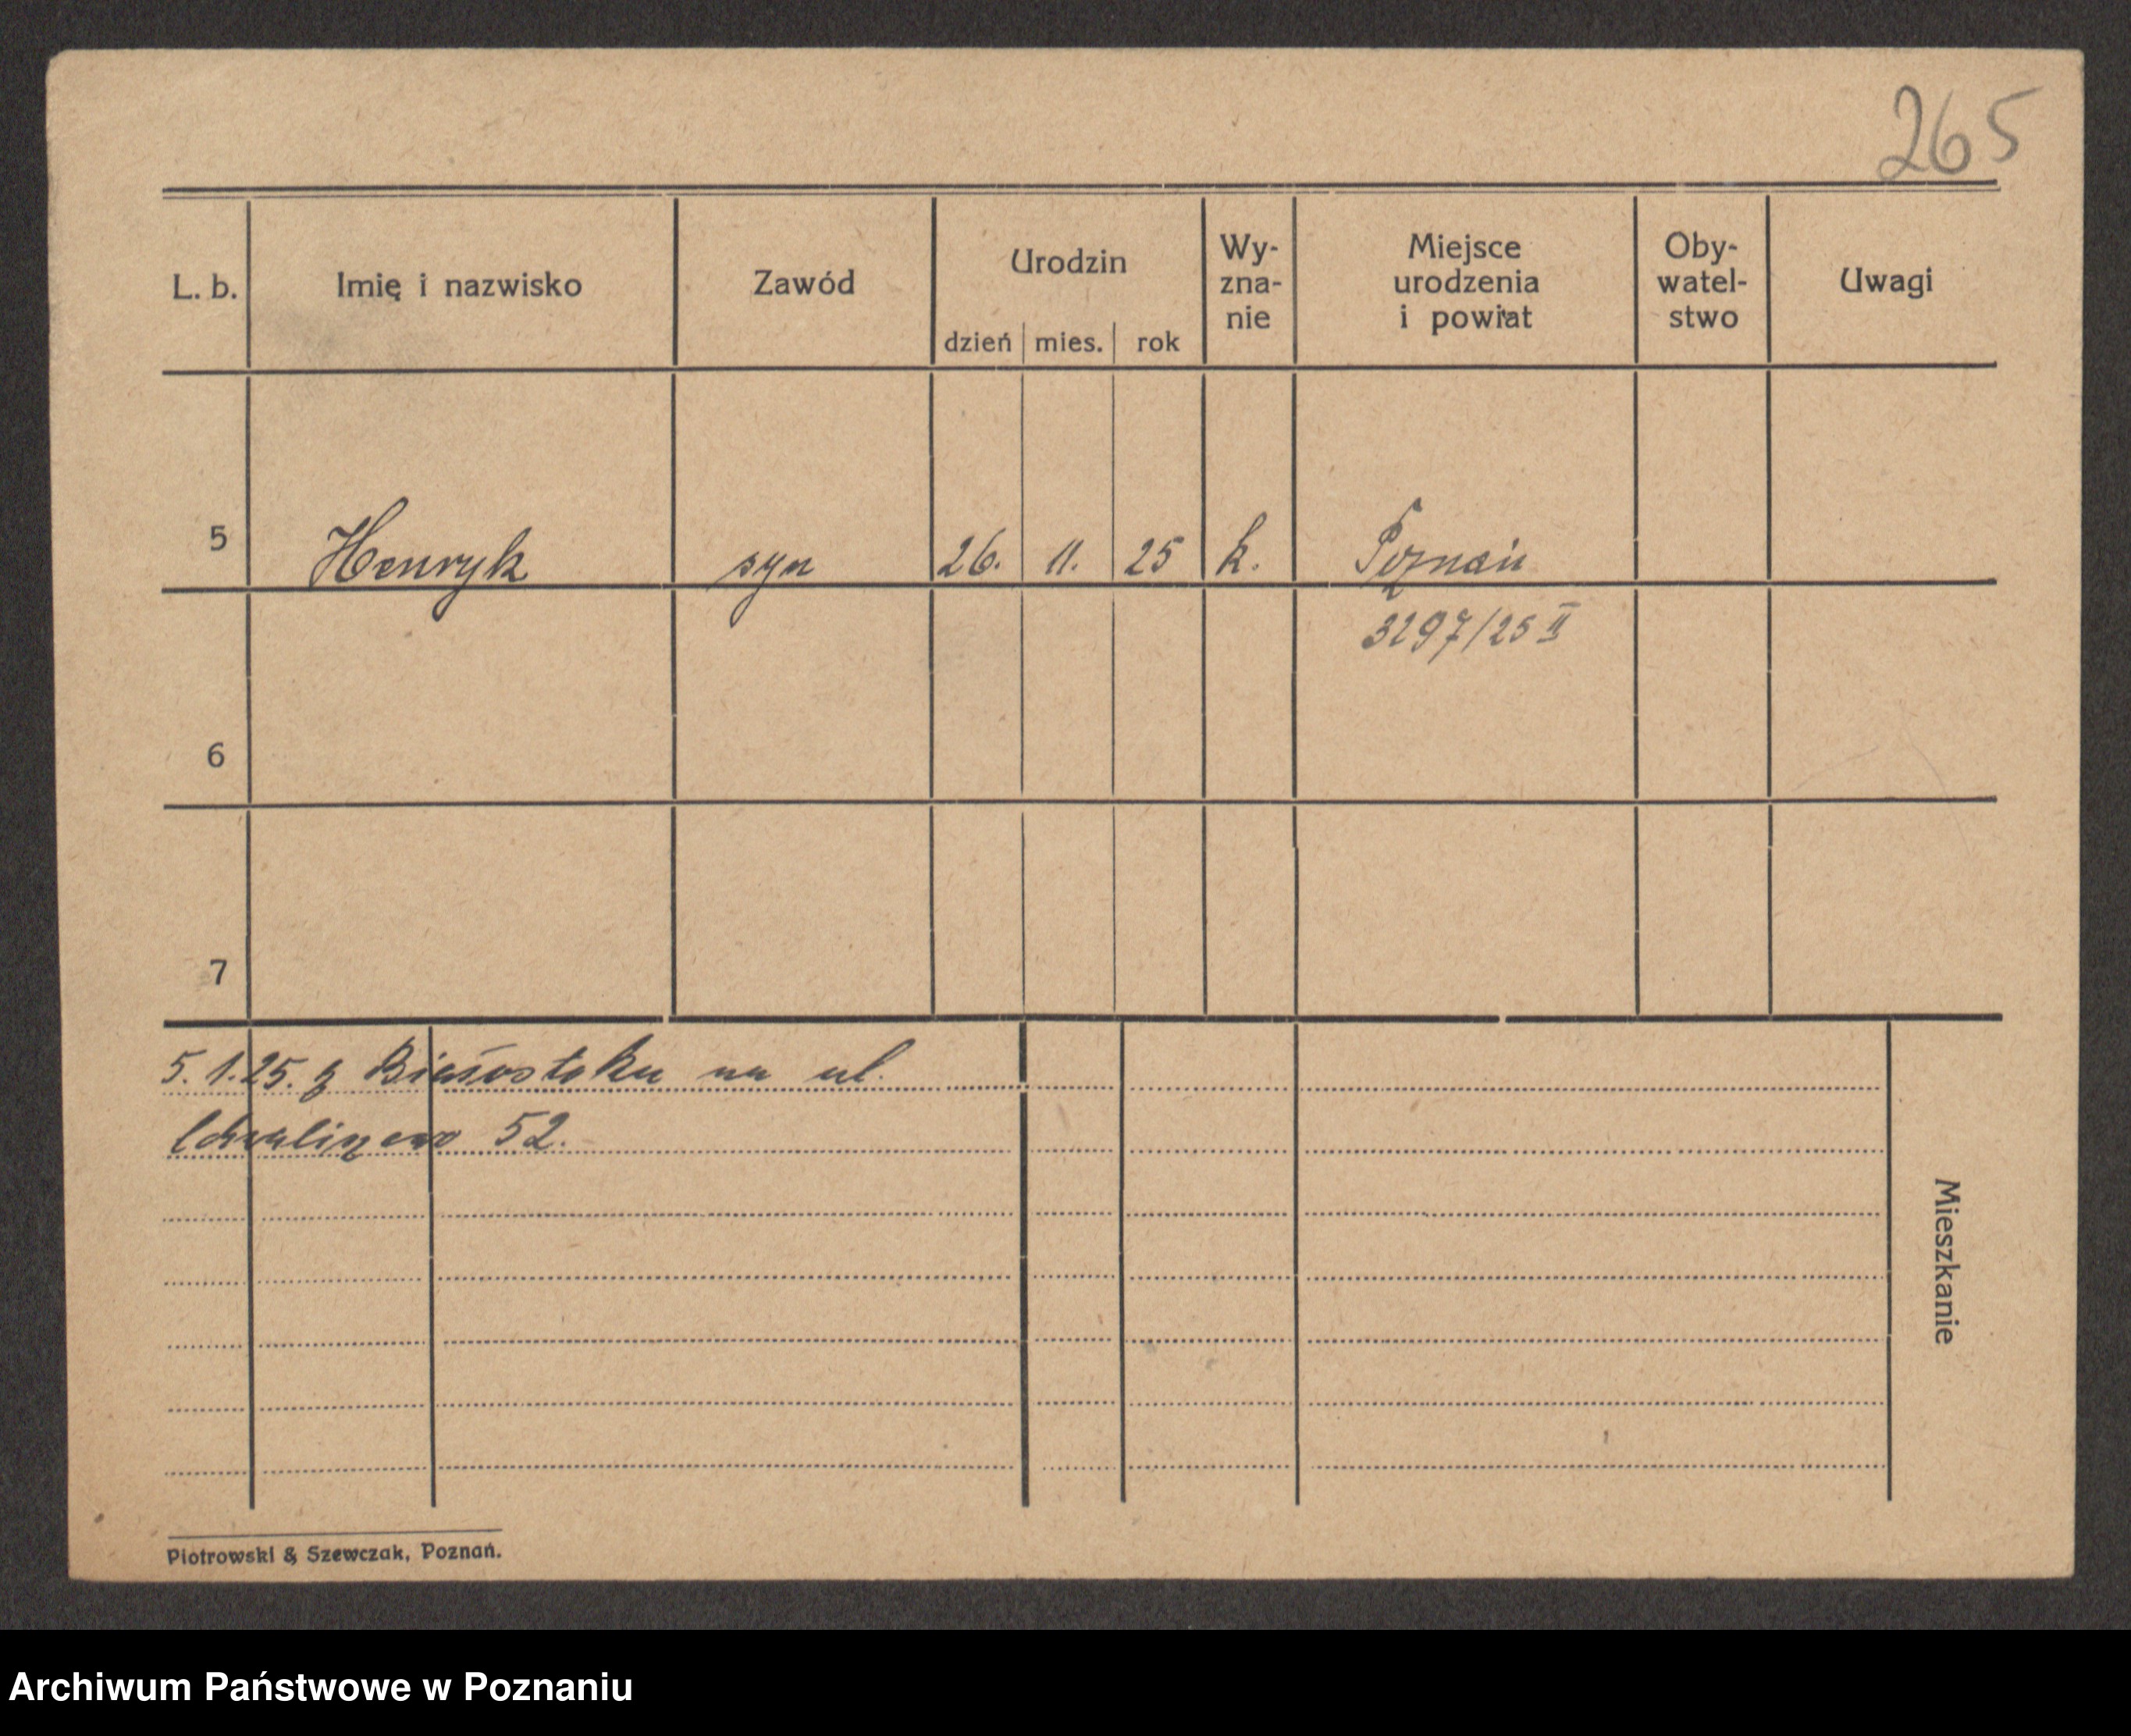 265
L. b. Imię i nazwisko Zawód Urodzin dzień mies. rok Wy- zna- nie Miejsce urodzenia i powiat Oby- watel- stwo Uwagi
5 Henryk syn 26. 11. 25 k. Poznań
3297/25 II
6
7
5. 1. 25. z Białostoku na ul.
52.
Mieszkanie
Piotrowski & Szewczak, Poznań.
Archiwum Państwowe w Poznaniu